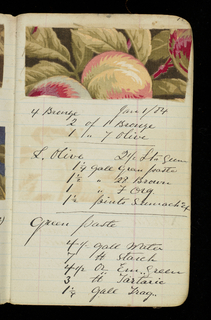 4 Bronze Jan 1/84
2 of A Bronze
1 " 7 Olive
L. Olive
1¼ Gall Gran paste
1 " 22 Brown
1 " 7 Org
1¼ pints Sumach
Green paste
4½ Gall Water
7 lb Starch
4½ Em. Green
3 lb Tartaric
1¼ Gall Trag.